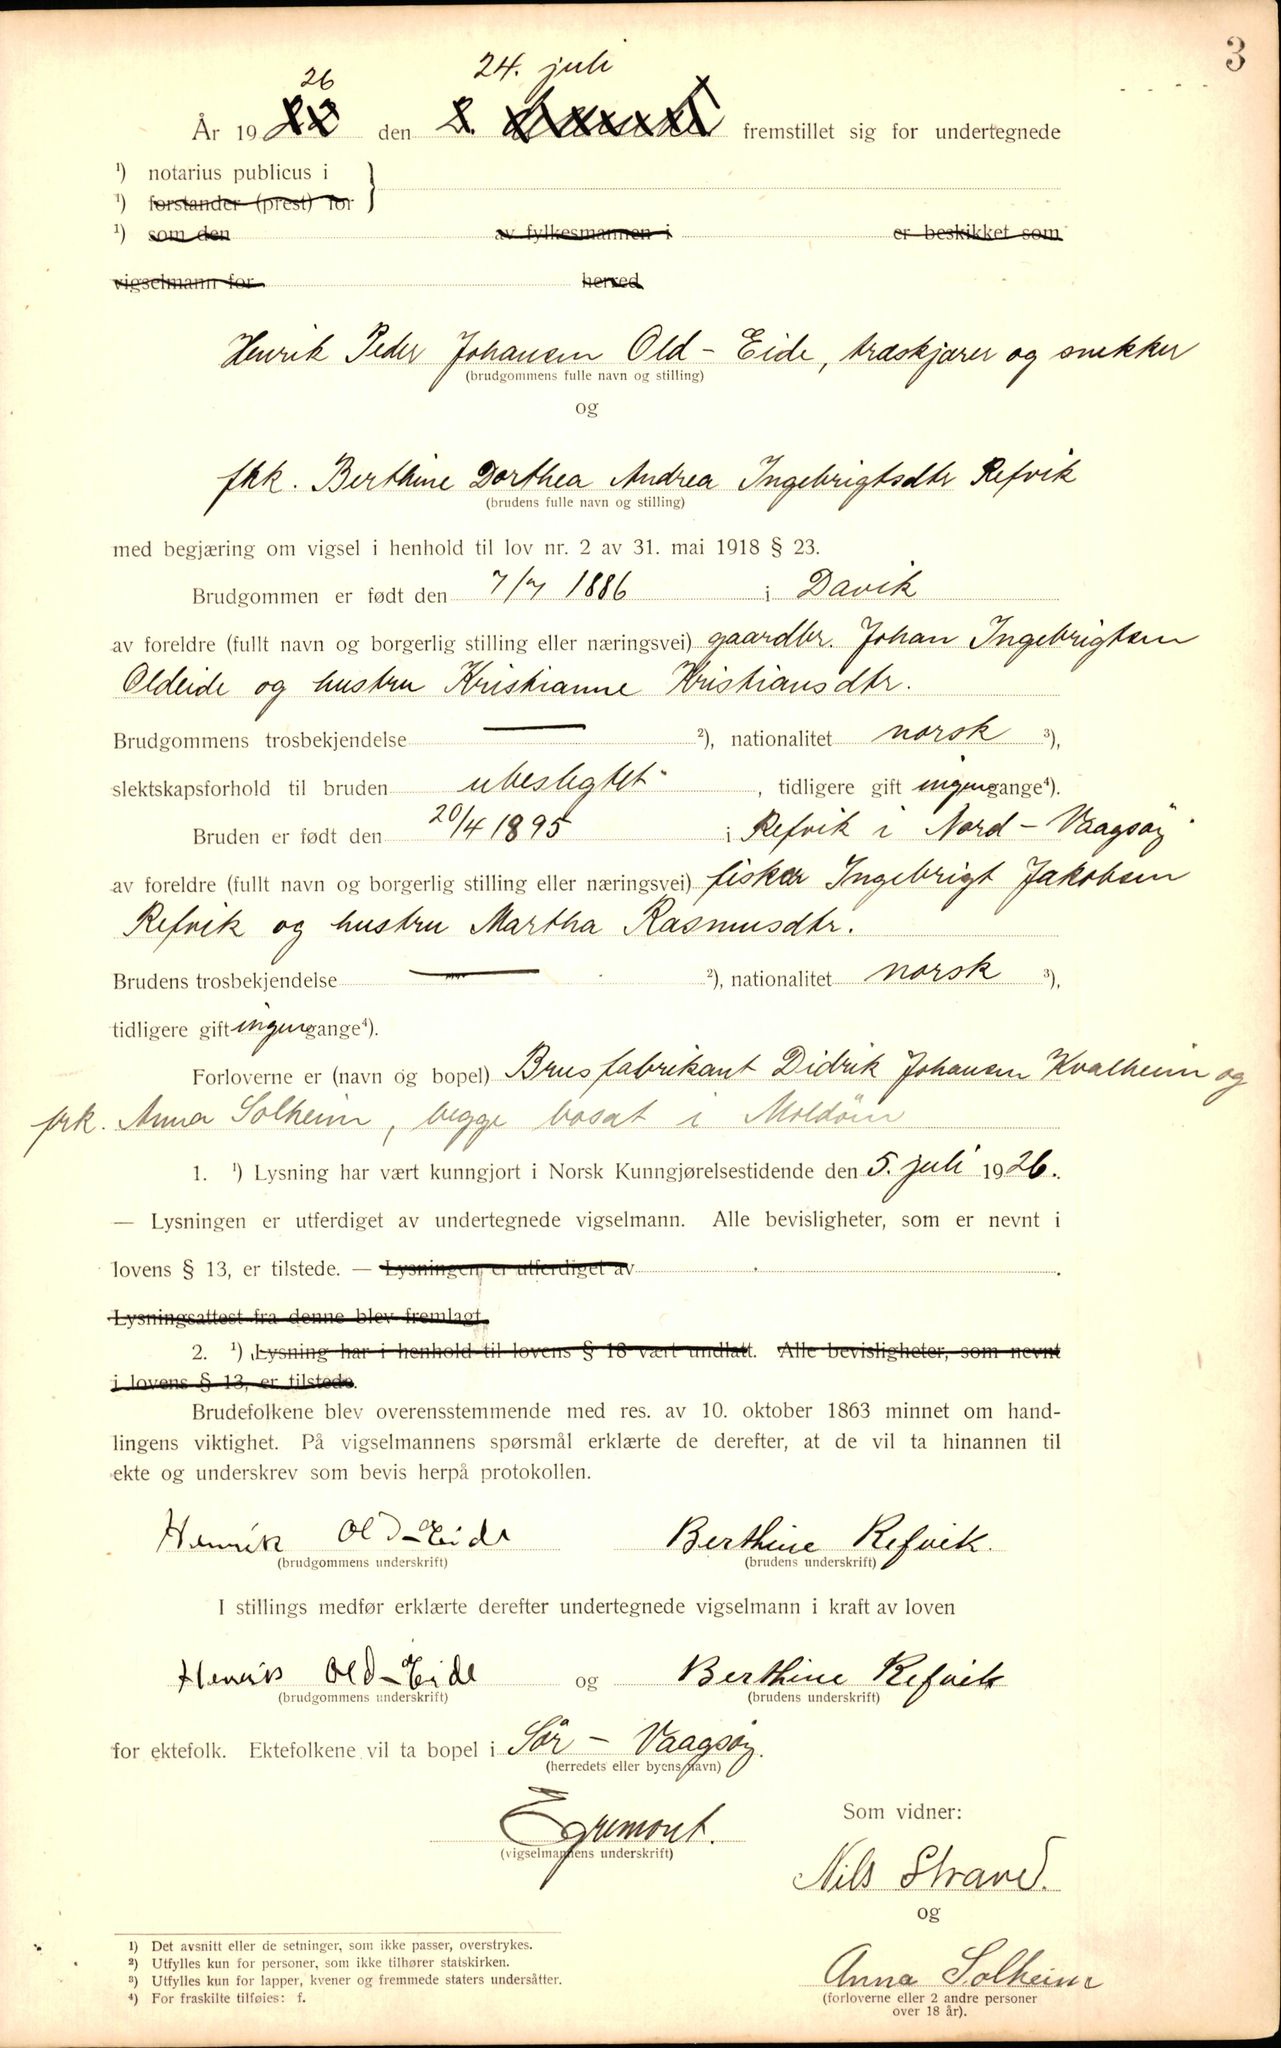 3
26 24. juli
År 19 den fremstillet sig for undertegnede
¹) notarius publicus i
¹) forstander (prest) for
¹) som den av fylkesmannen i er beskikket som
vigselmann for herred
Henrik Peder Johansen Old - Eide, træskjærer og snekker
(brudgommens fulle navn og stilling)
og
frk. Berthine Dorthea Andrea Ingebrigtsdtr Refvik
(brudens fulle navn og stilling)
med begjæring om vigsel i henhold til lov nr. 2 av 31. mai 1918 § 23.
Brudgommen er født den 7/7 1886 i Davik
av foreldre (fullt navn og borgerlig stilling eller næringsvei) gaardbr. Johan Ingebrigtsen
Oldeide og hustru Kristianne Kristiansdtr.
Brudgommens trosbekjendelse — ²), nationalitet norsk ³),
slektskapsforhold til bruden ubeslegtet , tidligere gift ingen gange⁴).
Bruden er født den 20/4 1895 i Refvik i Nord - Vaagsøy
av foreldre (fullt navn og borgerlig stilling eller næringsvei) fisker Ingebrigt Jakobsen
Refvik og hustru Martha Rasmusdtr.
Brudens trosbekjendelse — ²), nationalitet norsk ³),
tidligere gift ingen gange⁴).
Forloverne er (navn og bopel) Brusfabrikant Didrik Johansen Kvalheim og
frk. Anna Solheim, begge bosat i Moldöen
1. ¹) Lysning har vært kunngjort i Norsk Kunngjørelsestidende den 5. juli 1926.
— Lysningen er utferdiget av undertegnede vigselmann. Alle bevisligheter, som er nevnt i
lovens § 13, er tilstede. — Lysningen er utferdiget av .
Lysningsattest fra denne blev fremlagt.
2. ¹) Lysning har i henhold til lovens § 18 vært undlatt. Alle bevisligheter, som nevnt
i lovens § 13, er tilstede.
Brudefolkene blev overensstemmende med res. av 10. oktober 1863 minnet om hand-
lingens viktighet. På vigselmannens spørsmål erklærte de derefter, at de vil ta hinannen til
ekte og underskrev som bevis herpå protokollen.
Henrik Old-Eide Berthine Refvik.
(brudgommens underskrift) (brudens underskrift)
I stillings medfør erklærte derefter undertegnede vigselmann i kraft av loven
Henrik Old-Eide og Berthine Refvik
(brudgommens underskrift) (brudens underskrift)
for ektefolk. Ektefolkene vil ta bopel i Sør - Vaagsøy.
(herredets eller byens navn)
Egremont. Som vidner:
(vigselmannens underskrift)
Nils Strand.
og
Anna Solheim
(forloverne eller 2 andre personer
over 18 år).
¹) Det avsnitt eller de setninger, som ikke passer, overstrykes.
²) Utfylles kun for personer, som ikke tilhører statskirken.
³) Utfylles kun for lapper, kvener og fremmede staters undersåtter.
⁴) For fraskilte tilføies: f.